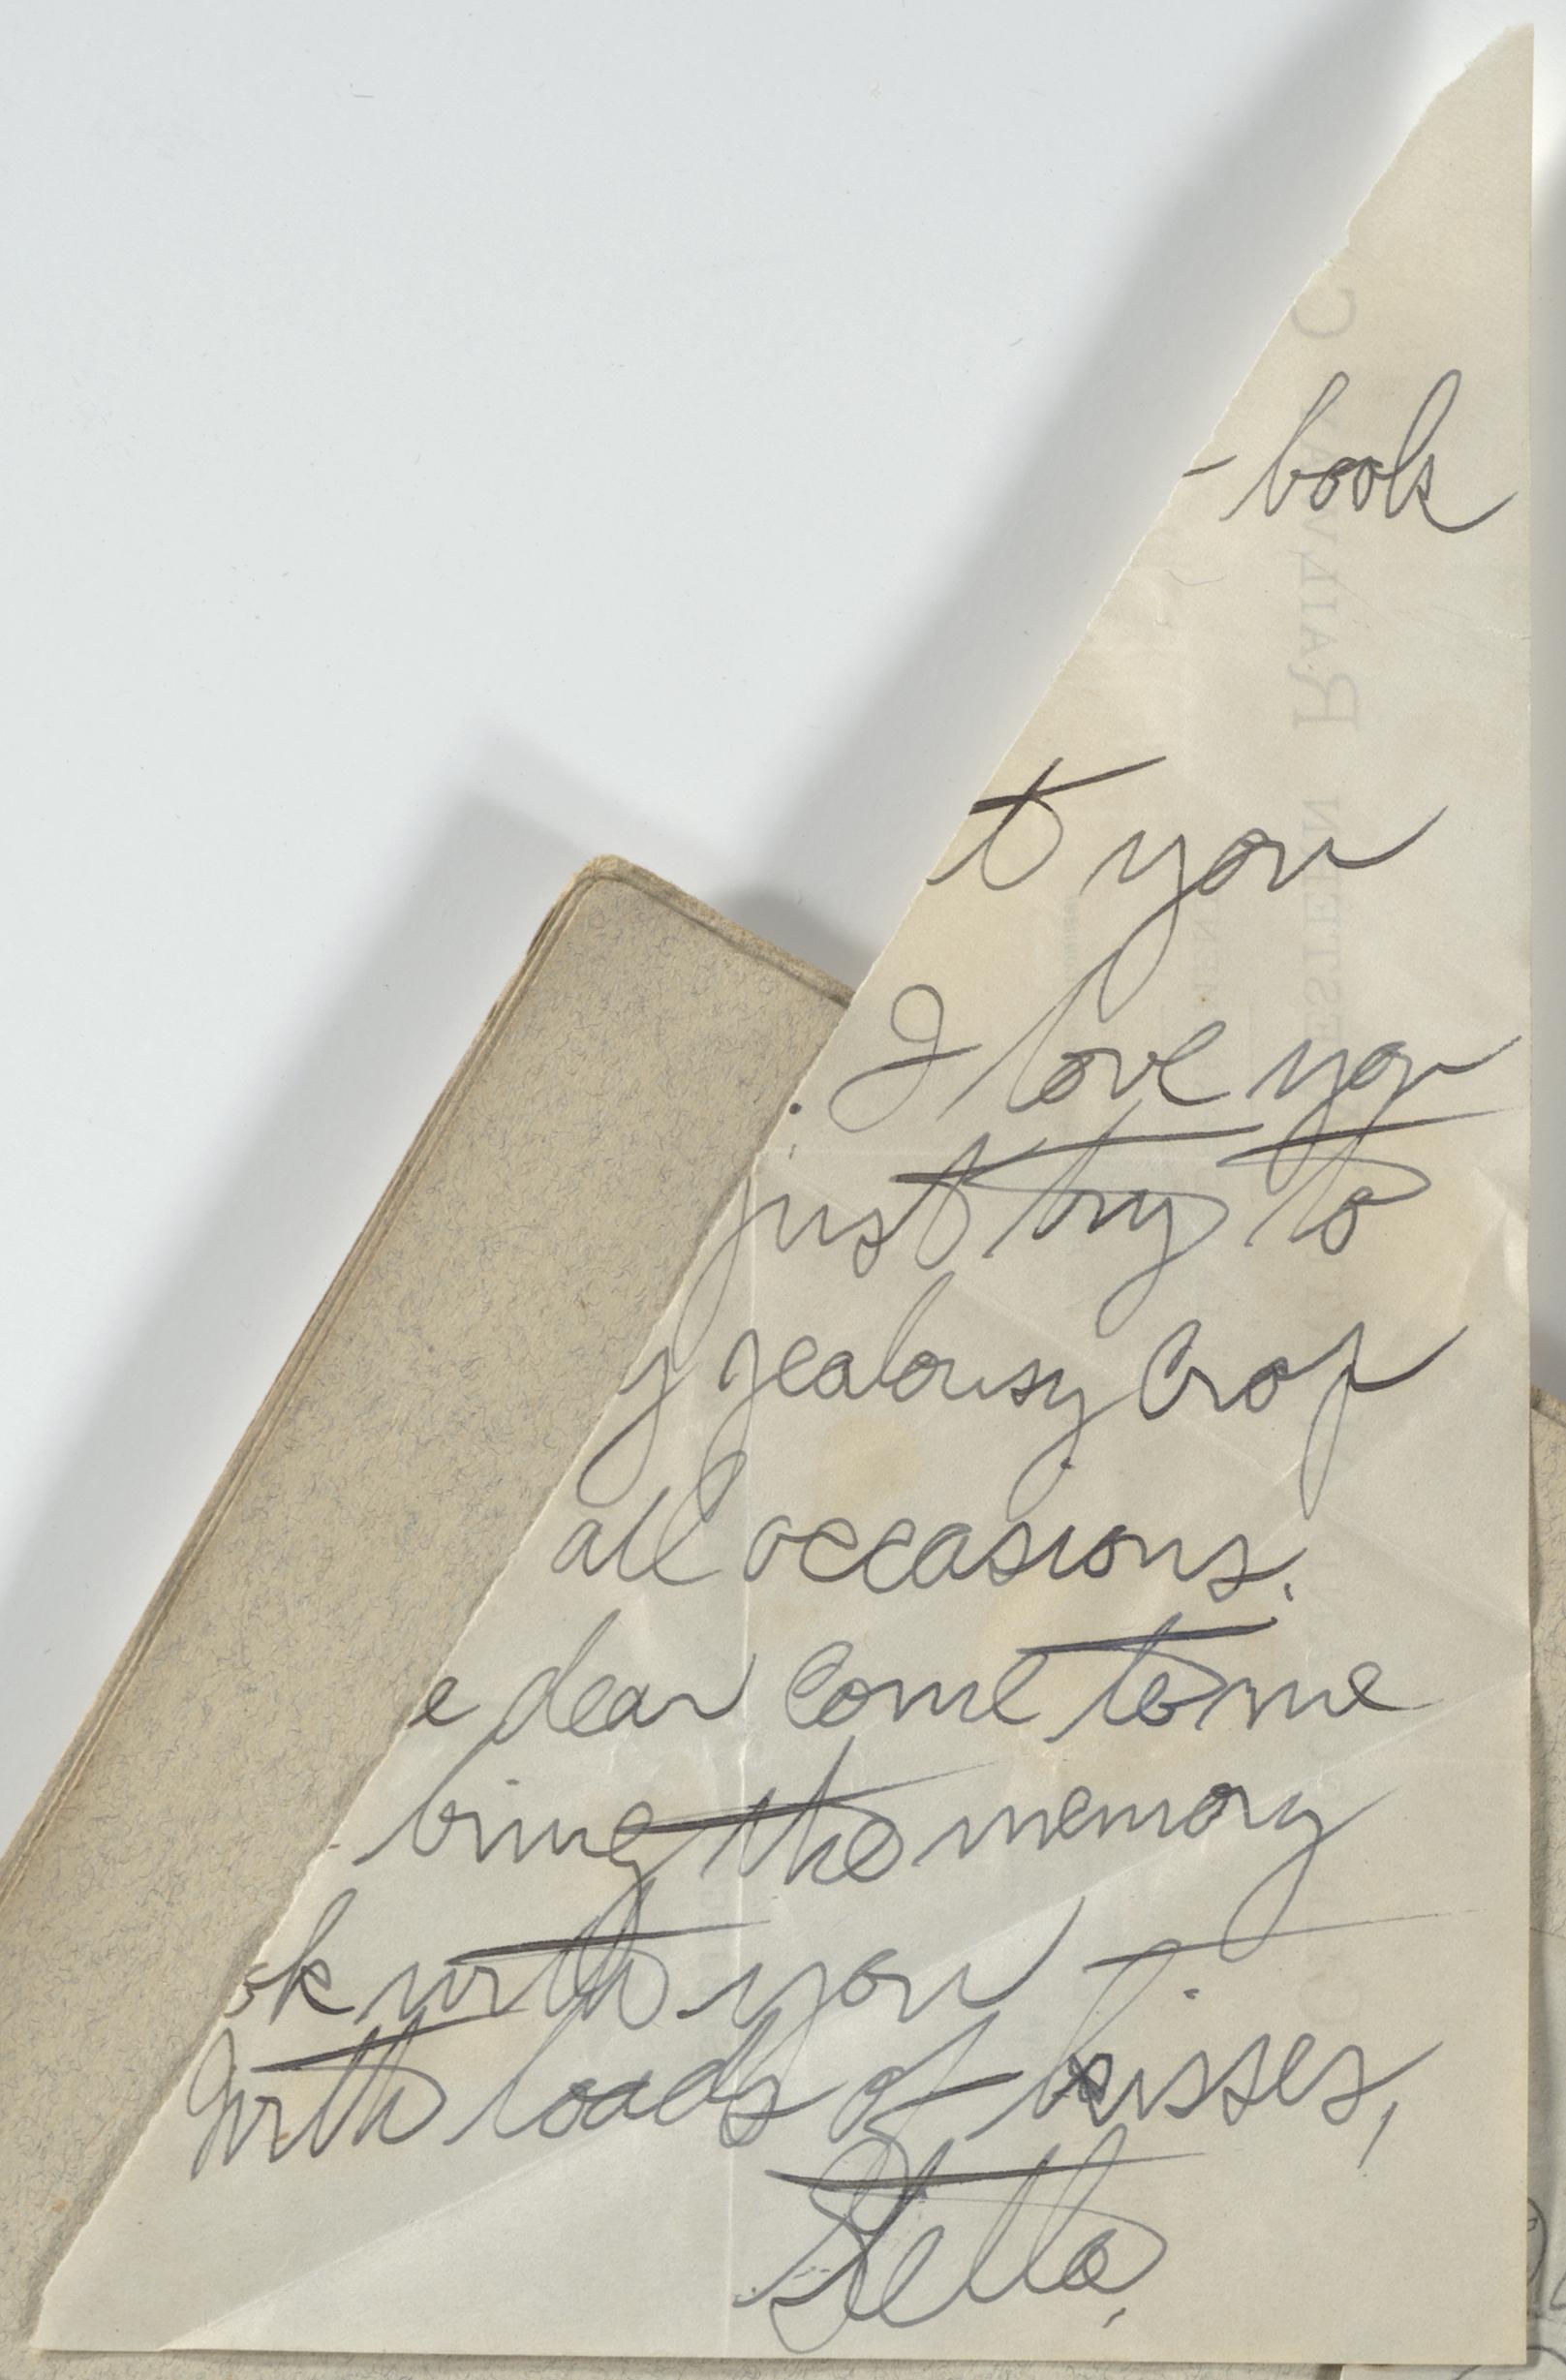 - book
t you
. I love you
just try to
y jealousy crop
all occasions.
e dear come to me
- bring the memory
ok with you.
With loads of kisses,
Stella,